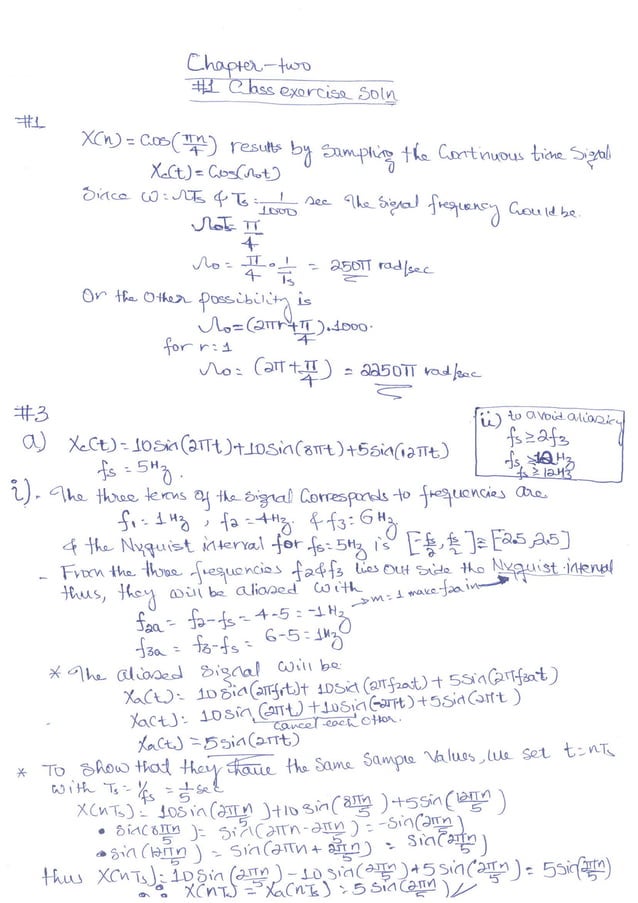 Chapter-two
#1 Class exercise soln
#1
X(n) = Cos(πn/4) results by sampling the Continuous time Signal
Xc(t) = Cos(Ω0t)
Since ω = ΩTs & Ts = 1/1000 sec The signal frequency Could be.
Ω0Ts = π/4
Ω0 = π/4 · 1/Ts = 250π rad/sec
Or the Other possibility is
Ω0 = (2πr + π/4).1000.
for r = 1
Ω0 = (2π + π/4) = 2250π rad/sec
#3
a) Xc(t) = 10Sin(2πt) + 10Sin(8πt) + 5Sin(12πt)
fs = 5Hz.
ii) to avoid aliasing
fs ≥ 2f3
fs ≥ 12Hz
i). The three terms of the signal Corresponds to frequencies are
f1 = 1Hz, f2 = 4Hz. & f3 = 6Hz
& the Nyquist interval for fs = 5Hz is [-fs/2, fs/2] ≡ [-2.5, 2.5]
- From the three frequencies f2&f3 lies out side the Nyquist interval
thus, they will be aliased with
→ m=1 make f2a in
f2a = f2 - fs = 4 - 5 = -1Hz
f3a = f3 - fs = 6 - 5 = 1Hz
* The aliased Signal will be
Xa(t) = 10Sin(2πf1t) + 10Sin(2πf2at) + 5Sin(2πf3at)
Xa(t) = 10Sin(2πt) + 10Sin(-2πt) + 5Sin(2πt)
Cancel each other.
Xa(t) = 5Sin(2πt)
* To show that they have the Same Sample Values, we set t = nTs
with Ts = 1/fs = 1/5 sec
X(nTs) = 10Sin(2πn/5) + 10Sin(8πn/5) + 5Sin(12πn/5)
• Sin(8πn/5) = Sin(2πn - 2πn/5) = -Sin(2πn/5)
• Sin(12πn/5) = Sin(2πn + 2πn/5) = Sin(2πn/5)
thus X(nTs) = 10Sin(2πn/5) - 10Sin(2πn/5) + 5Sin(2πn/5) = 5Sin(2πn/5)
∴ X(nTs) = Xa(nTs) = 5Sin(2πn/5)